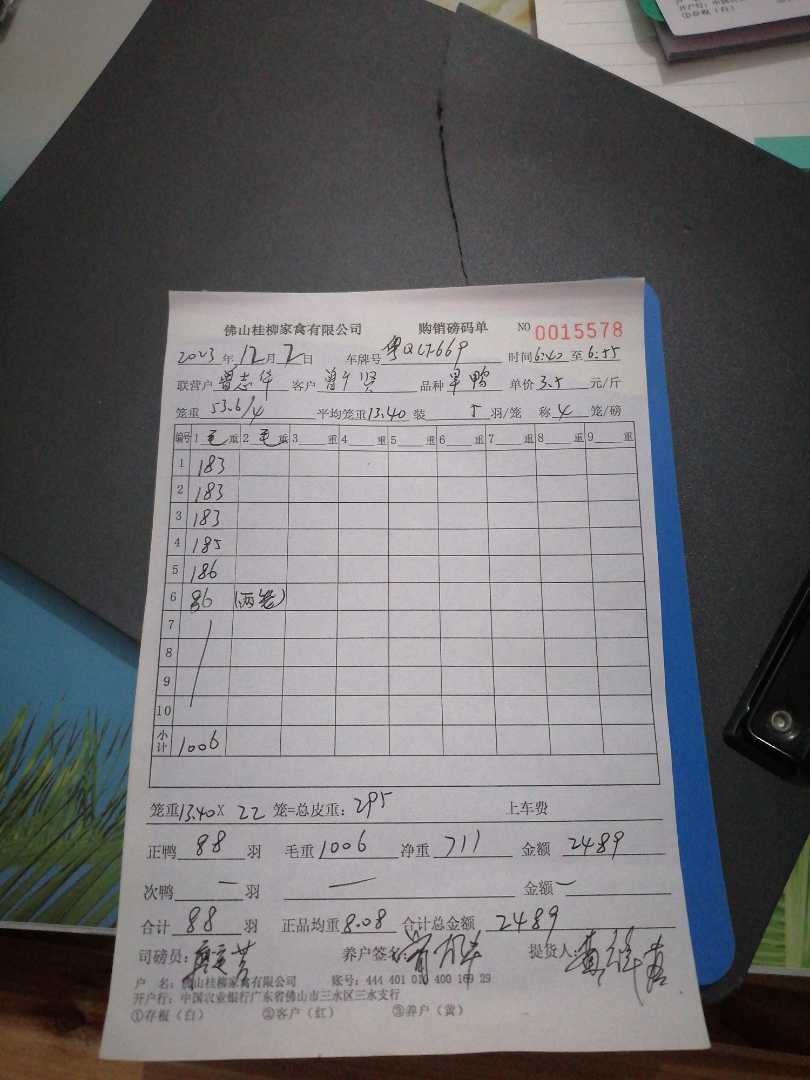 佛山桂柳家禽有限公司 购销磅码单 NO 0015578
2023年12月2日 车牌号 时间6:42至6:55
联营户曾志华 客户 品种 单价3.5元/斤
笼重53.6/4 平均笼重13.40装 羽/笼 称4笼/磅
编号 1毛重 2毛重 3重 4重 5重 6重 7重 8重 9重
1 183
2 183
3 183
4 185
5 186
6 86 (两笼)
7
8
9
10
小计 1006
笼重13.40X 22 笼=总皮重:295 上车费
正鸭88羽 毛重1006 净重711 金额2489
次鸭—羽 — 金额—
合计88羽 正品均重8.08 合计总金额2489
司磅员: 养户签名: 提货人:
户 名:佛山桂柳家禽有限公司 账号:444 401 010 400 169 29
开户行:中国农业银行广东省佛山市三水区三水支行
①存根(白) ②客户(红) ③养户(黄)